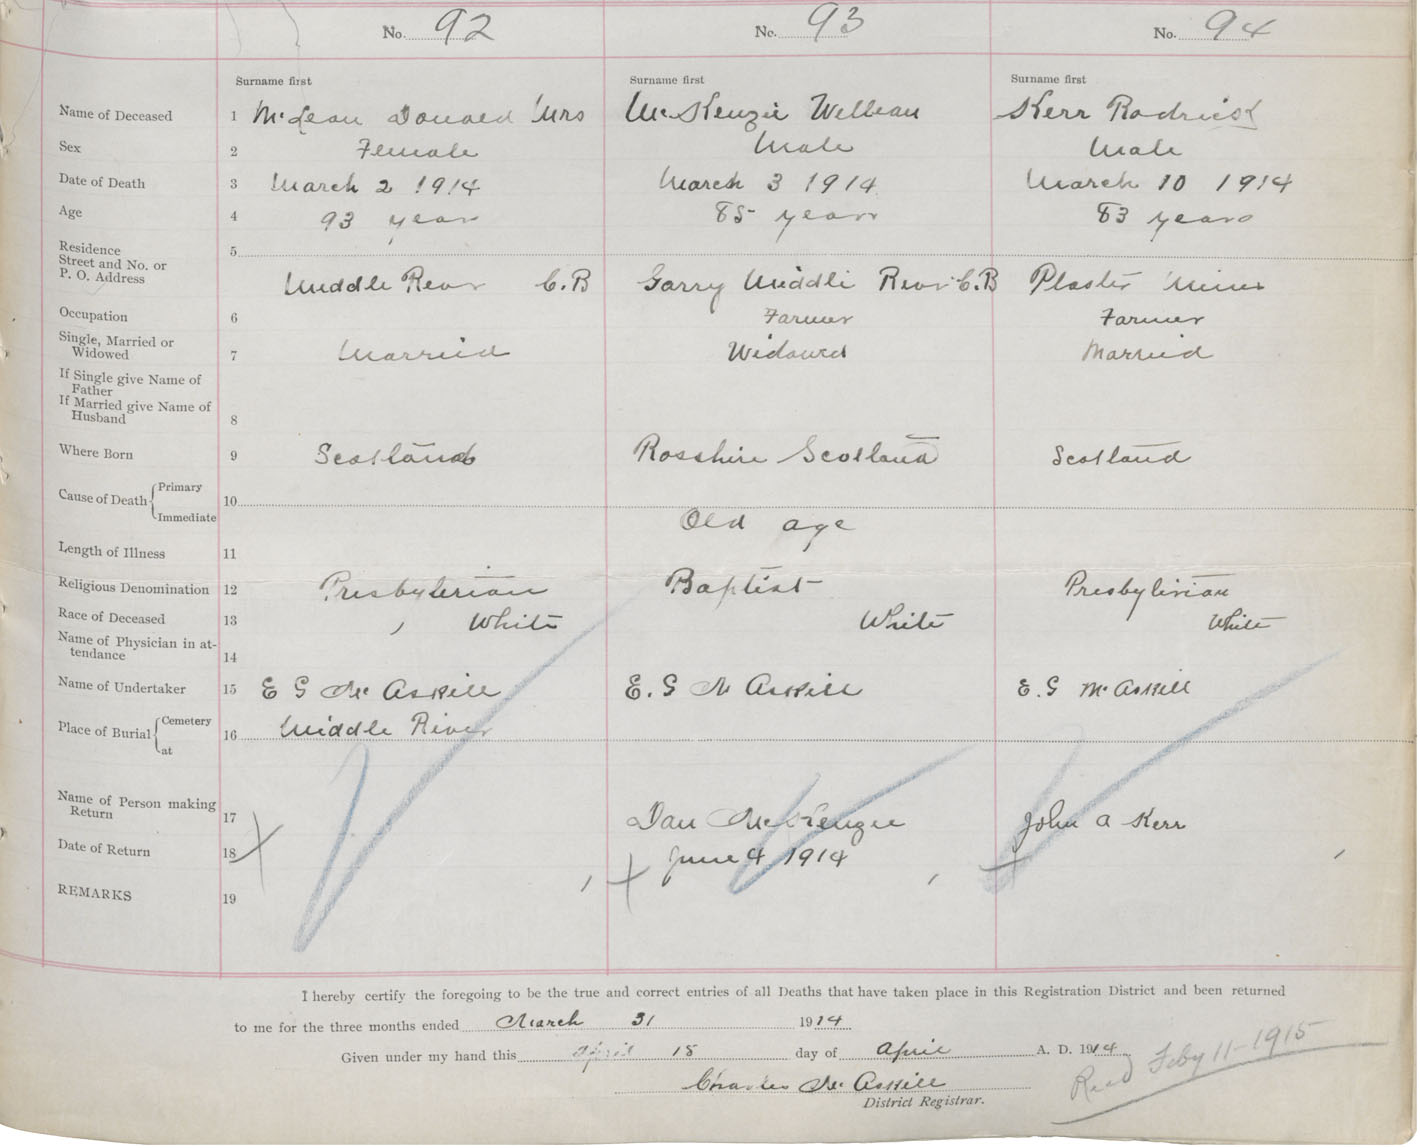 No. 92 No. 93 No. 94
Surname first Surname first Surname first
Name of Deceased 1 McLean Donald Mrs McKenzie William Kerr Rodrick
Sex 2 Female Male Male
Date of Death 3 March 2 1914 March 3 1914 March 10 1914
Age 4 93 years 85 years 83 years
Residence
Street and No. or
P. O. Address 5 Middle River C.B Garry Middle River C.B Plaster Mines
Occupation 6 Farmer Farmer
Single, Married or
Widowed 7 Married Widowed Married
If Single give Name of
Father
If Married give Name of
Husband 8
Where Born 9 Scotland Rosshire Scotland Scotland
Cause of Death Primary
Immediate 10 Old age
Length of Illness 11
Religious Denomination 12 Presbyterian Baptist Presbyterian
Race of Deceased 13 White White White
Name of Physician in at-
tendance 14
Name of Undertaker 15 E G McAskill E. G McAskill E. G McAskill
Place of Burial Cemetery
at 16 Middle River
Name of Person making
Return 17 Dan McKenzie John A Kerr
Date of Return 18 June 4 1914
REMARKS 19
I hereby certify the foregoing to be the true and correct entries of all Deaths that have taken place in this Registration District and been returned
to me for the three months ended March 31 1914
Given under my hand this April 15 day of April A. D. 1914
Charles McAskill
District Registrar.
Recd Feby 11-1915